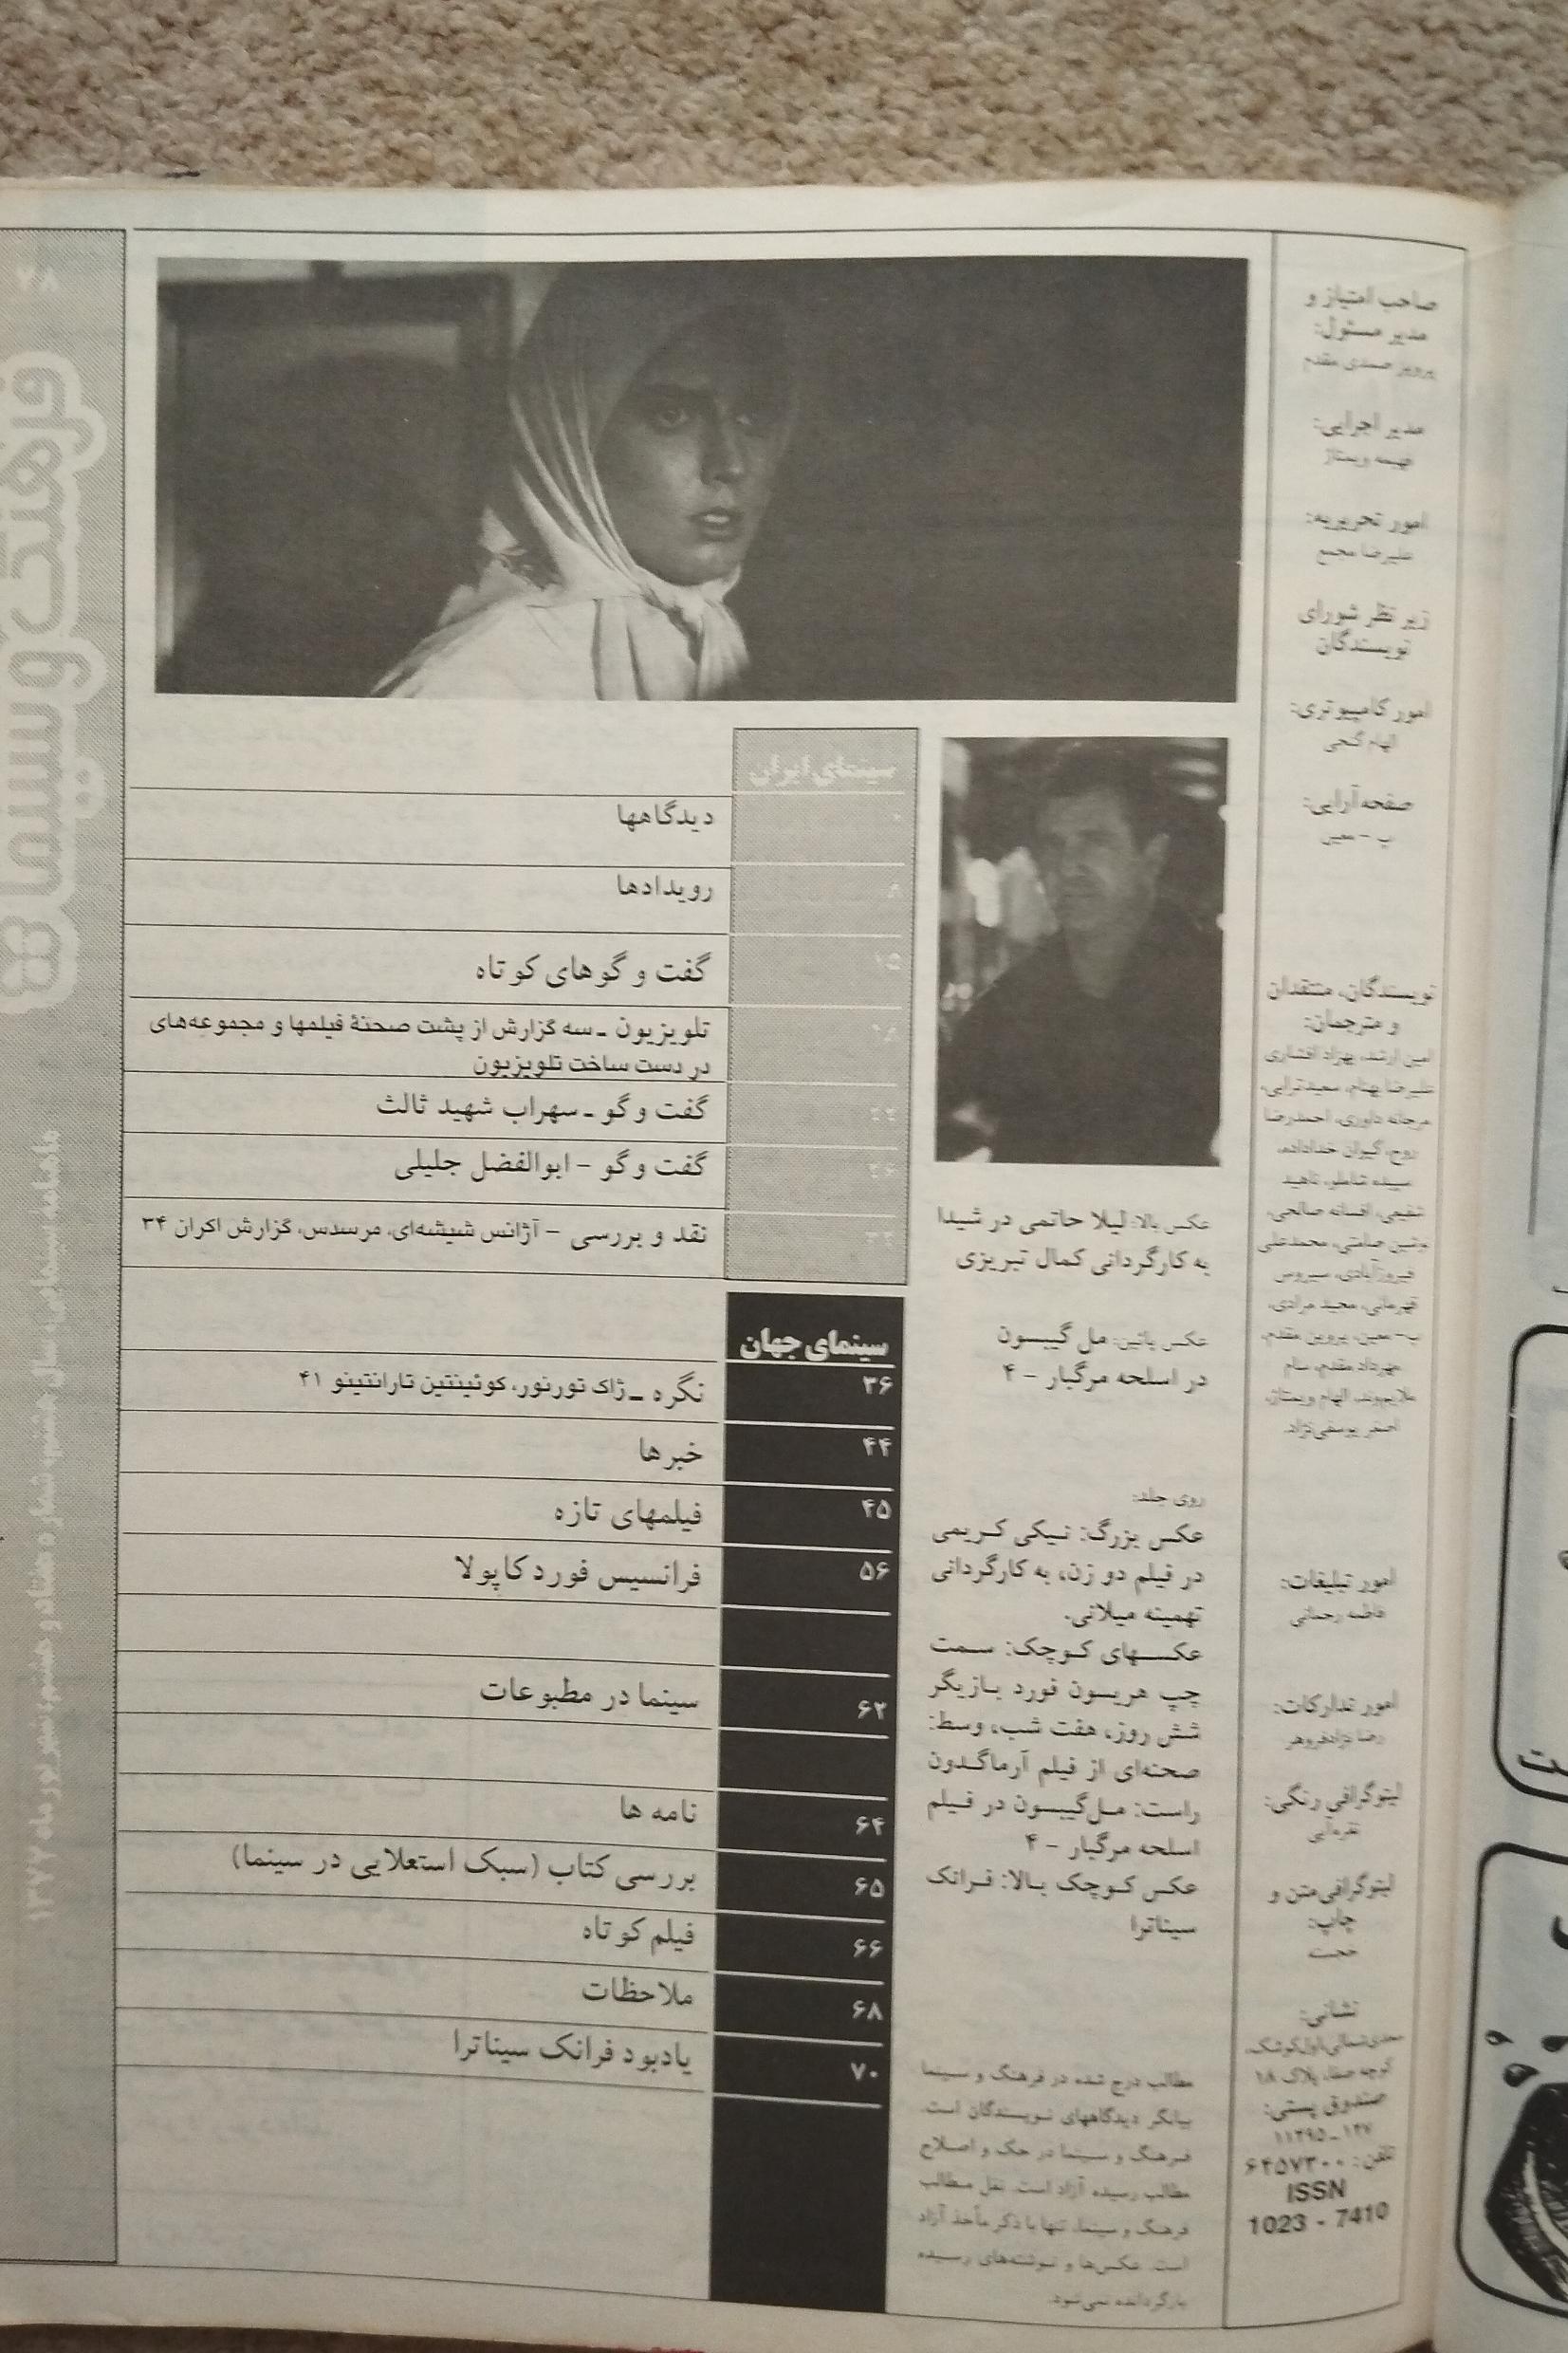 صاحب امتیاز و
مدیر مسئول:
پرویز صمدی مقدم
مدیر اجرایی:
فهیمه ویمتاژ
امور تحریریه:
علیرضا مجمع
زیر نظر شورای
نویسندگان
امور کامپیوتری:
الهام گنجی
صفحه‌آرایی:
پ - معین
نویسندگان، منتقدان
و مترجمان:
امین ارشد، بهزاد افشاری
علیرضا بهنام، سعید ترابی،
مرجانه داوری، احمدرضا
روح، کیوان خداداده،
سپیده شاملو، ناهید
شفیعی، افسانه صالحی،
نوشین صامتی، محمدعلی
فیروزآبادی، سیروس
قهرمانی، مجید مرادی،
پ- معین، پروین مقدم،
مهرداد مقدم، سام
ملایم‌وند، الهام ویمتاژ،
اصغر یوسفی‌نژاد.
امور تبلیغات:
فاطمه رحمانی
امور تدارکات:
رضا نژادفروهر
لیتوگرافی رنگی:
نقره‌آبی
لیتوگرافی متن و
چاپ:
حجت
نشانی:
سعدی‌شمالی،اول‌کوشک،
کوچه صفا، پلاک ۱۸
صندوق پستی:
۱۱۴۹۵-۱۴۷
تلفن: ۶۴۵۷۳۰۰
ISSN
1023 - 7410
عکس بالا: لیلا حاتمی در شیدا
به کارگردانی کمال تبریزی
عکس پائین: مل گیبسون
در اسلحه مرگبار - ۴
روی جلد:
عکس بزرگ: نیکی کریمی
در فیلم دو زن، به کارگردانی
تهمینه میلانی.
عکسهای کوچک: سمت
چپ هریسون فورد بازیگر
شش روز، هفت شب، وسط:
صحنه‌ای از فیلم آرماگدون
راست: مل‌گیبسون در فیلم
اسلحه مرگبار - ۴
عکس کوچک بالا: فرانک
سیناترا
مطالب درج شده در فرهنگ و سینما
بیانگر دیدگاههای نویسندگان است.
فرهنگ و سینما در حک و اصلاح
مطالب رسیده آزاد است. نقل مطالب
فرهنگ و سینما، تنها با ذکر مأخذ آزاد
است. عکس‌ها و نوشته‌های رسیده
بازگردانده نمی‌شود.
سینمای ایران
دیدگاهها
۸ رویدادها
۱۵ گفت و گوهای کوتاه
۱۸ تلویزیون ـ سه گزارش از پشت صحنۀ فیلمها و مجموعه‌های
در دست ساخت تلویزیون
۲۲ گفت و گو ـ سهراب شهید ثالث
گفت و گو - ابوالفضل جلیلی
نقد و بررسی - آژانس شیشه‌ای، مرسدس، گزارش اکران ۳۴
سینمای جهان
۳۶ نگره ـ ژاک تورنور، کوئینتین تارانتینو ۴۱
۴۴ خبرها
۴۵ فیلمهای تازه
۵۶ فرانسیس فورد کاپولا
۶۲ سینما در مطبوعات
۶۴ نامه ها
۶۵ بررسی کتاب (سبک استعلایی در سینما)
۶۶ فیلم کوتاه
۶۸ ملاحظات
۷۰ یادبود فرانک سیناترا
۲۸
فرهنگ و سینما
ماهنامه سینمائی، سال هشتم، شماره هفتاد و هشتم، شهریور ماه ۱۳۷۷